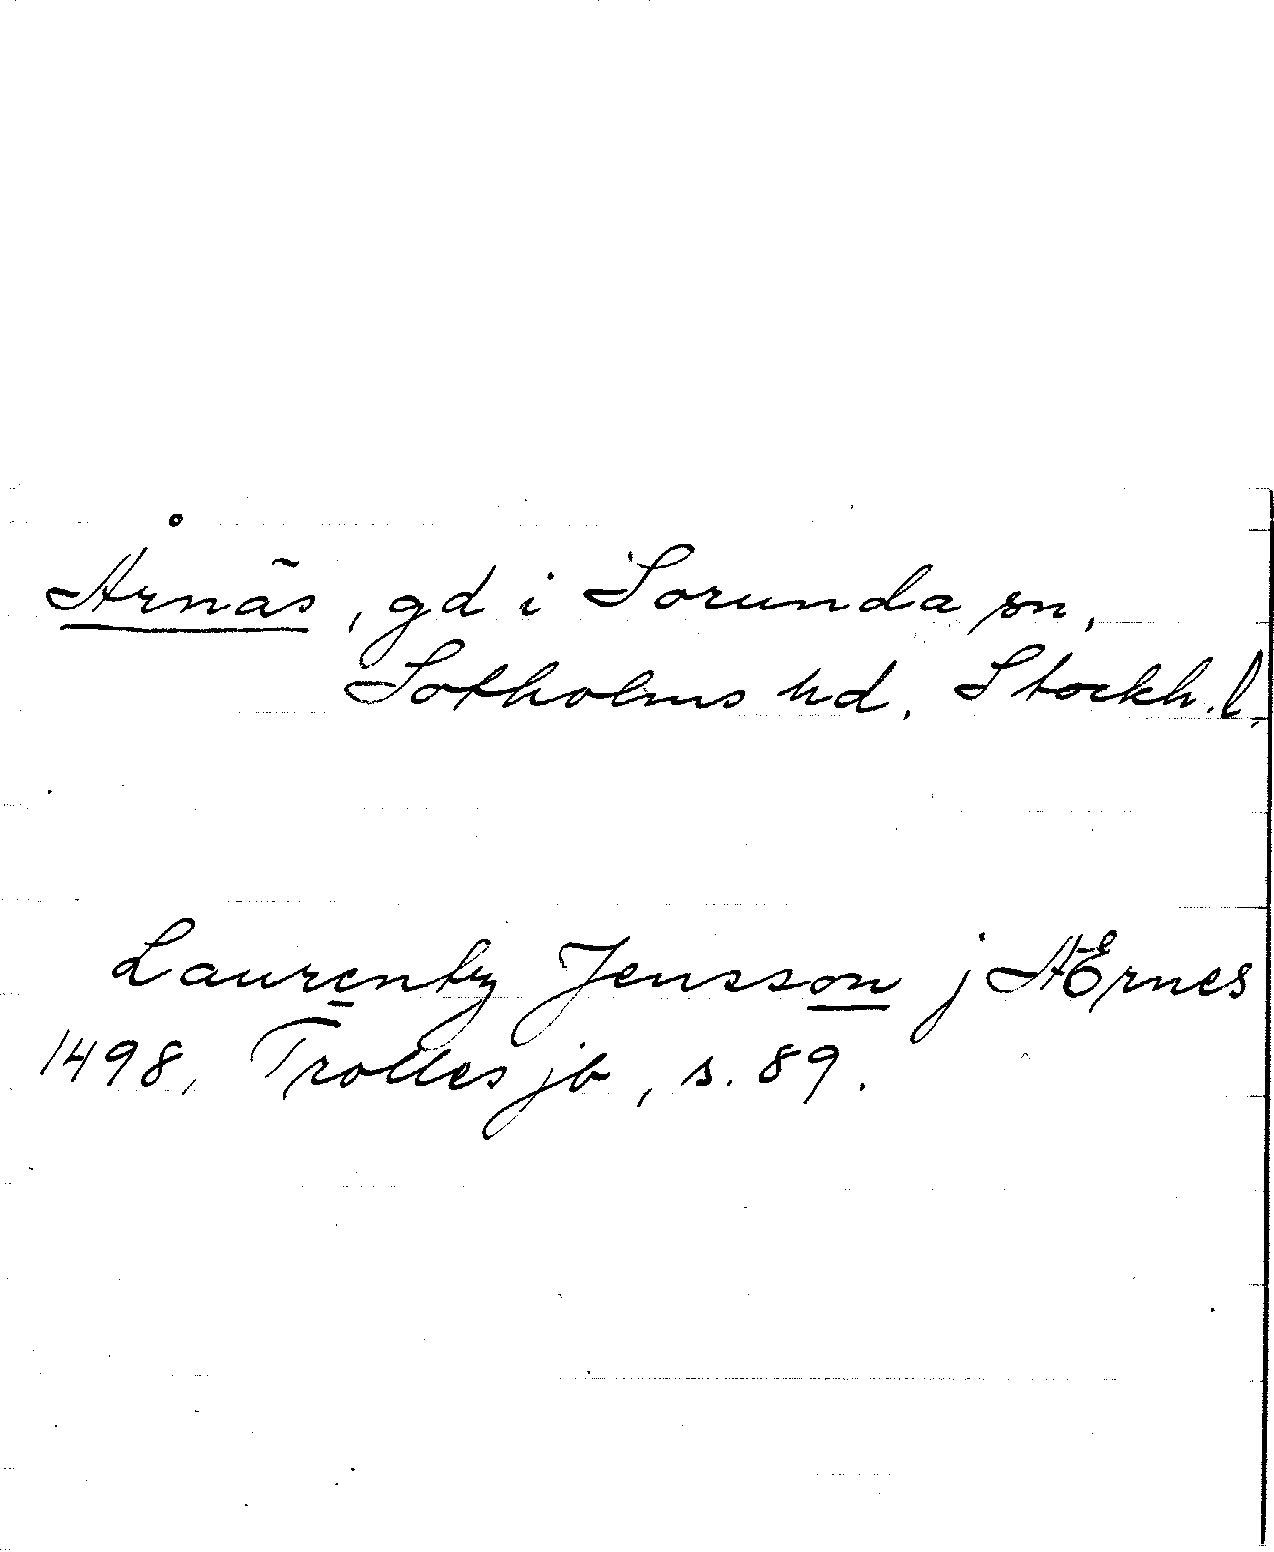 Årnäs, gd i Sorunda sn,
Sotholms hd. Stockh.l.
Laurentz Jensson j Ærnes
1498, Trolles jb, s. 89.